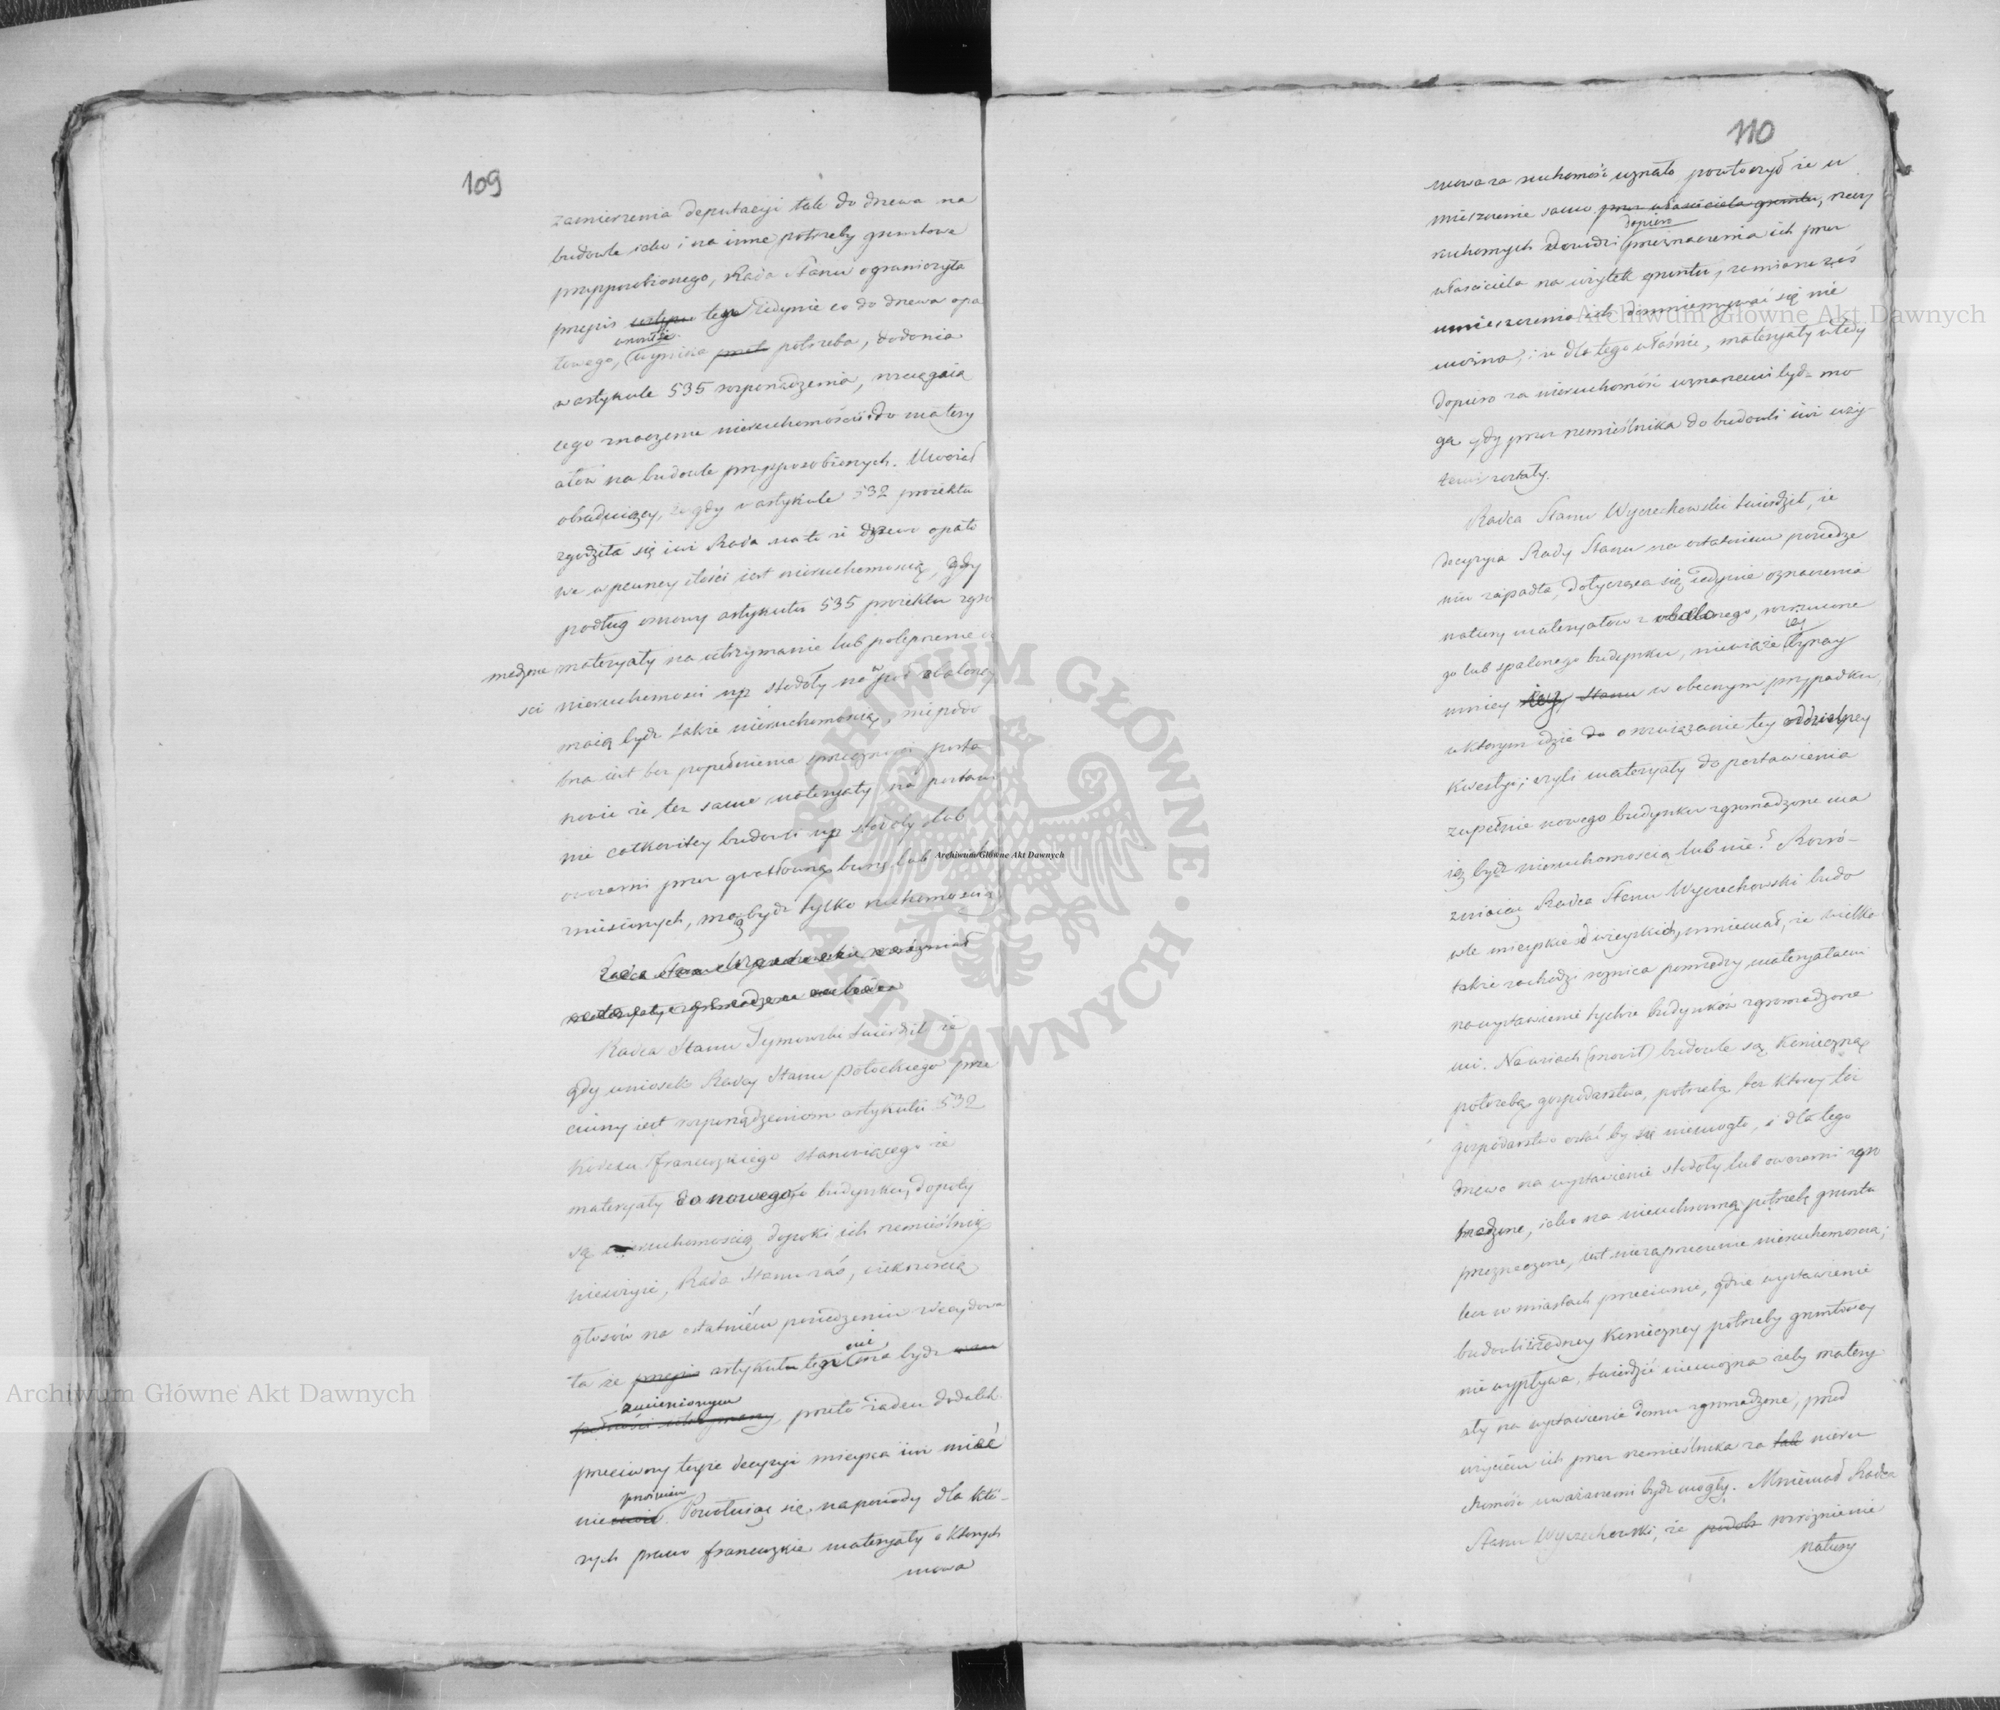 109
zamierzenia deputacyi tak do drzewa na
budowle iako i na inne potrzeby gruntowe
przysposobionego, Rada Stanu ograniczyła
przepis wstępu tego iedynie co do drzewa opa
łowego, wynika potrzeba, dodania
w artykule 535 rozporządzenia, rozciągaią
cego znaczenie nieruchomości do matery
ałów na budowle przysposobionych. Uważał
obraduiący, że gdy w artykule 532 proiektu
zgodziła się iuż Rada na to iż drzewo opało
we w pewney ilości iest nieruchomością, gdy
podług osnowy artykułu 535 proiektu zgro
madzone materyały na utrzymanie lub polepszenie
nieruchomości np. stodoły na pół obaloney
maią bydź także nieruchomością, niepodo
bna iest bez popełnienia sprzeczności posta
nowić że też same materyały na postawie
nie całkowitey budowli np stodoły lub
owczarni przez gwałtowną burzę lub
zniesionych, maią bydź tylko ruchomością
Radca Stanu Wyczechowski rozróżniał
materyały zgromadzone na budowę
Radca Stanu Tymowski twierdził że
gdy wniosek Radcy Stanu Potockiego prze
ciwny iest rozporządzeniom artykułu 532
Kodexu francuzkiego stanowiącego że
materyały do nowego budynku, dopóty
są ruchomością dopóki ich rzemieślnik
nieużyie, Rada Stanu zaś, większością
głosów na ostatniém posiedzeniu zdecydowa
ła że przepis artykułu tego nie ma bydź
zmienionym
przeto żaden dodatek
przeciwny teyże decyzyi mieysca iuż mieć
niepowinien. Powołuiąc się na powody dla któ-
rych prawo francuzkie materyały o których
mowa
110
mowa za ruchomość uznało powtórzył że u
mieszczenie samo przez właściciela gruntu, rzeczy
dopiero
ruchomych dowodzi przeznaczenia ich przez
właściciela na użytek gruntu, zamiaru zaś
umieszczenia ich domniemywać się nie
można, i że dla tego właśnie, materyały wtedy
dopiero za nieruchomość uznanemi bydź mo
gą gdy przez rzemieślnika do budowli iuż uży-
temi zostały.
Radca Stanu Wyczechowski twierdził, że
decyzya Rady Stanu na ostatniem posiedze
niu zapadła, dotycząca się iedynie oznaczenia
natury materyałów z obalonego, rozrzucone
go lub spalonego budynku, niewiąże iey
bynay
mniey w obecnym przypadku,
w którym idzie o rozwiązanie tey oddzielney
kwestyi; czyli materyały do postawienia
zupełnie nowego budynku zgromadzone ma
ią bydź nieruchomością lub nie? Rozró-
żniaiąc Radca Stanu Wyczechowski budo
wle mieyskie od wieyskich, mniemał, że wielka
także zachodzi różnica pomiędzy materyałami
na wystawienie tychże budynków zgromadzone
mi. Na wsiach (mówił) budowle są konieczną
potrzebą gospodarstwa, potrzebą bez którey toż
gospodarstwo ostać by się niemogło, i dla tego
drzewo na wystawienie stodoły lub owczarni zgro
madzone, iako na nieuchronną potrzebę gruntu
przeznaczone, iest niezaprzeczenie nieruchomością;
lecz w miastach przeciwnie, gdzie wystawienie
budowli z żadney konieczney potrzeby gruntowey
nie wypływa, twierdzić niemożna żeby matery
ały na wystawienie domu zgromadzone, przed
użyciem ich przez rzemieślnika za nieru
chomość uważanemi bydź mogły. Mniemał Radca
Stanu Wyczechowski, że rozróżnienie
natury
Archiwum Główne Akt Dawnych
Archiwum Główne Akt Dawnych
Archiwum Główne Akt Dawnych
ARCHIWUM GŁÓWNE · AKT DAWNYCH ·